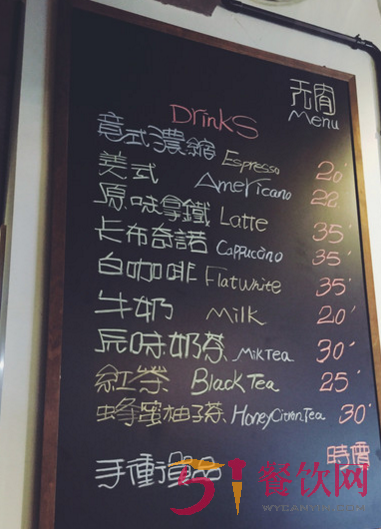 无宥
Menu
Drinks
意式濃縮 Espresso 20'
美式 Americano 22'
原味拿鐵 Latte 35'
卡布奇諾 Cappuccino 35'
白咖啡 Flat white 35'
牛奶 Milk 20'
原味奶茶 Milk Tea 30'
紅茶 Black Tea 25'
蜂蜜柚子茶 Honey Citron Tea 30'
手 時價
51餐饮网